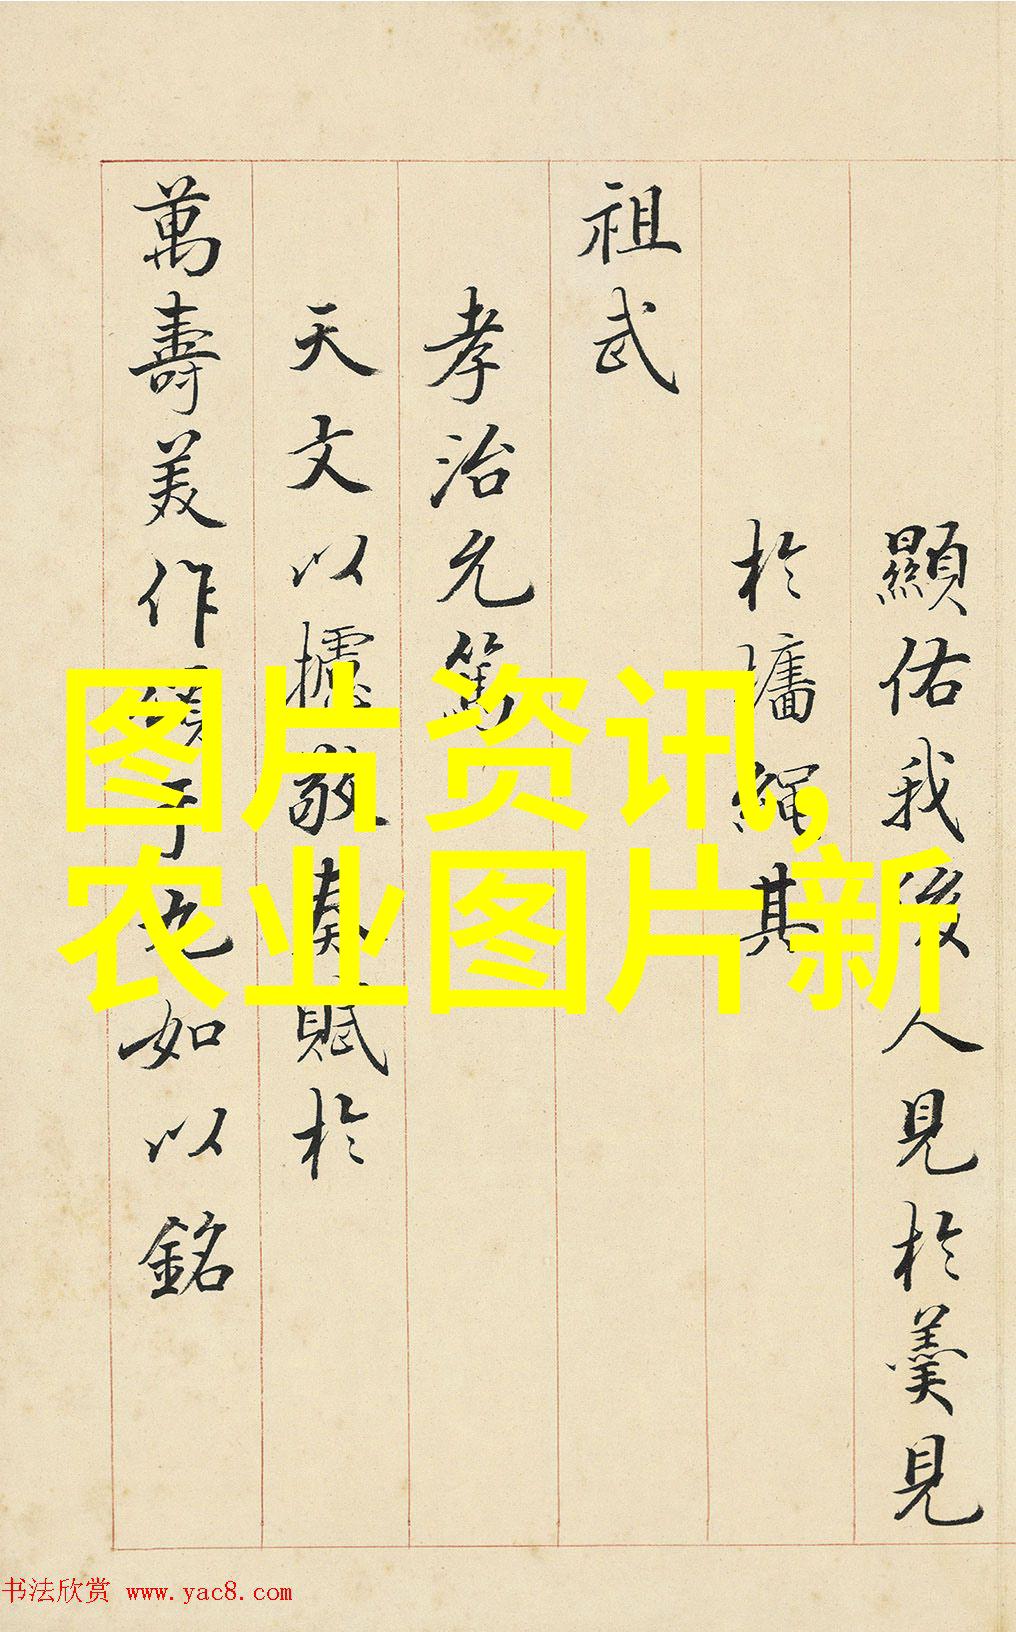 顯佑我後人見於羹見
於墻繩其
祖武
孝治允篤
天文以攄敬奏賦於
萬壽美作頌于也如以銘
图片资讯,
农业图片新
书法欣赏 www.yac8.com